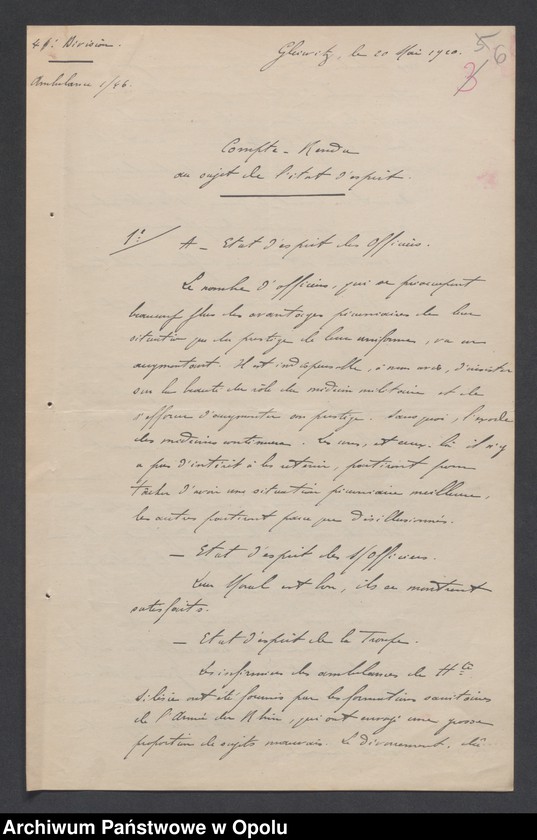 46e Division.
Gleiwitz, le 20 Mai 1920.
56
3
Ambulance 1/46.
Compte-Rendu
au sujet de l'état d'esprit.
1° A - Etat d'esprit des Officiers.
Le nombre d'officiers, qui se préoccupent
beaucoup plus des avantages pécuniaires de leur
situation que du prestige de leur uniforme, va en
augmentant. Il est indispensable, à mon avis, d'insister
sur la beauté du rôle du médecin militaire et de
s'efforcer d'augmenter son prestige. Sans quoi, l'exode
des médecins continuera. Les uns, et ceux-là il n'y
a pas d'intérêt à les retenir, partiront pour
tâcher d'avoir une situation pécuniaire meilleure,
les autres partiront parce que désillusionnés.
- Etat d'esprit des S/Officiers.
Leur Moral est bon, ils se montrent
satisfaits.
- Etat d'esprit de la Troupe.
Les infirmiers des ambulances de Hte
Silésie ont été fournis par les formations sanitaires
de l'Armée du Rhin, qui ont envoyé une grosse
proportion de sujets mauvais. Le dévouement,
Archiwum Państwowe w Opolu